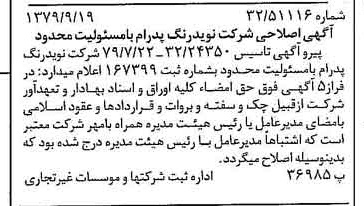 شماره ۳۲/۵۱۱۱۶ ۱۳۷۹/۹/۱۹
آگهی اصلاحی شرکت نویدرنگ پدرام بامسئولیت محدود
پیرو آگهی تاسیس ۳۲/۲۴۳۵۰ــ۷۹/۷/۲۲ شرکت نویدرنگ
پدرام بامسئولیت محدود بشماره ثبت ۱۶۷۳۹۹ اعلام میدارد: در
فراز۵ آگهی فوق حق امضاء کلیه اوراق و اسناد بهادار و تعهدآور
شرکت ازقبیل چک و سفته و بروات و قراردادها و عقود اسلامی
باامضای مدیرعامل یا رئیس هیئت مدیره همراه بامهر شرکت معتبر
است که اشتباهاً مدیرعامل با رئیس هیئت مدیره درج شده بود که
بدینوسیله اصلاح میگردد.
پ ۳۶۹۸۵ اداره ثبت شرکتها و موسسات غیرتجاری